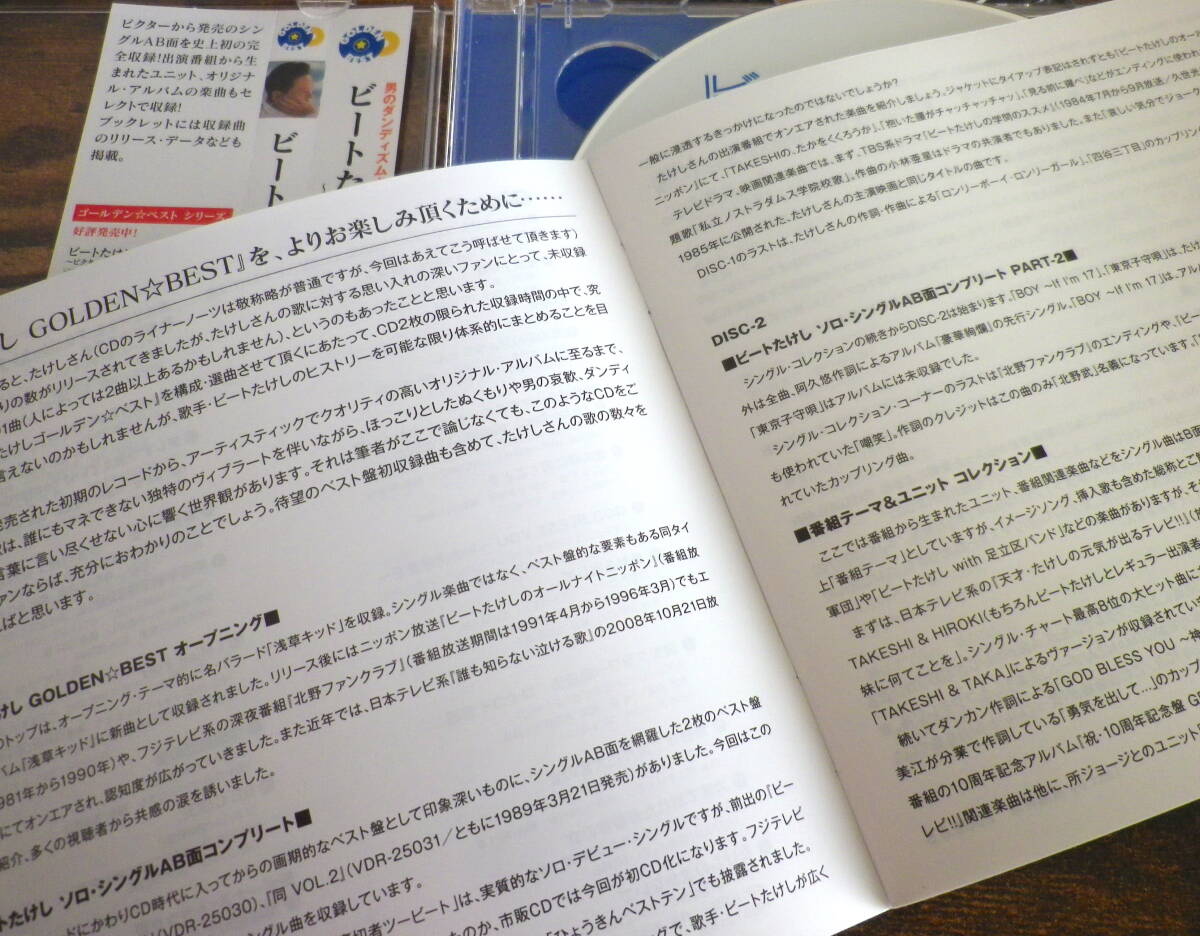 ビクターから発売のシン
グルAB面を史上初の完
全収録!出演番組から生
まれたユニット、オリジナ
ル・アルバムの楽曲もセ
レクトで収録!
ブックレットには収録曲
のリリース・データなども
掲載。
ゴールデン☆ベスト シリーズ
好評発売中!
男のダンディズム
ビートた
ビート
GOLDEN☆BEST』を、よりお楽しみ頂くために……
ると、たけしさん(CDのライナーノーツは敬称略が普通ですが、今回はあえてこう呼ばせて頂きます)
りの数がリリースされてきましたが、たけしさんの歌に対する思い入れの深いファンにとって、未収録
1曲(人によっては2曲以上あるかもしれません)、というのもあったことと思います。
たけしゴールデン☆ベスト』を構成・選曲させて頂くにあたって、CD2枚の限られた収録時間の中で、究
言えないのかもしれませんが、歌手・ビートたけしのヒストリーを可能な限り体系的にまとめることを目
発売された初期のレコードから、アーティスティックでクオリティの高いオリジナル・アルバムに至るまで、
は、誰にもマネできない独特のヴィブラートを伴いながら、ほっこりとしたぬくもりや男の哀歌、ダンディ
言葉に言い尽くせない心に響く世界観があります。それは筆者がここで論じなくても、このようなCDをご
ァンならば、充分におわかりのことでしょう。待望のベスト盤初収録曲も含めて、たけしさんの歌の数々を
ばと思います。
けし GOLDEN☆BEST オープニング■
のトップは、オープニング・テーマ的に名バラード「浅草キッド」を収録。シングル楽曲ではなく、ベスト盤的な要素もある同タイ
バム『浅草キッド』に新曲として収録されました。リリース後にはニッポン放送『ビートたけしのオールナイトニッポン』(番組放
981年から1990年)や、フジテレビ系の深夜番組『北野ファンクラブ』(番組放送期間は1991年4月から1996年3月)でもエ
にてオンエアされ、認知度が広がっていきました。また近年では、日本テレビ系『誰も知らない泣ける歌』の2008年10月21日放
紹介、多くの視聴者から共感の涙を誘いました。
たけし ソロ・シングルAB面コンプリート■
ドにかわりCD時代に入ってからの画期的なベスト盤として印象深いものに、シングルAB面を網羅した2枚のベスト盤
(VDR-25030)、『同 VOL.2』(VDR-25031/ともに1989年3月21日発売)がありました。今回はこの
ングル曲を収録しています。
切者ツービート」は、実質的なソロ・デビュー・シングルですが、前出の『ビー
たのか、市販CDでは今回が初CD化になります。フジテレビ
「ひょうきんベストテン」でも披露されました。
ングで、歌手・ビートたけしが広く
一般に浸透するきっかけになったのではないでしょうか?
たけしさんの出演番組でオンエアされた楽曲を紹介しましょう。ジャケットにタイアップ表記はされずとも『ビートたけしのオー
ニッポン』にて、「TAKESHIの、たかをくくろうか」、「抱いた腰がチャッチャッチャッ」、「見る前に躍べ」などがエンディングに使われ
テレビドラマ、映画関連楽曲では、まず、TBS系ドラマ『ビートたけしの学問ノススメ』(1984年7月から9月放送/久世光
題歌「私立ノストラダムス学院校歌」。作曲の小林亜星はドラマの共演者でもありました。また「哀しい気分でジョーク
1985年に公開された、たけしさんの主演映画と同じタイトルの曲です。
DISC-1のラストは、たけしさんの作詞・作曲による「ロンリーボーイ・ロンリーガール」、「四谷三丁目」のカップリン
DISC-2
■ビートたけし ソロ・シングルAB面コンプリート PART-2■
シングル・コレクションの続きからDISC-2は始まります。「BOY ~If I'm 17」、「東京子守唄」は、たけ
外は全曲、阿久悠作詞によるアルバム『豪華絢爛』の先行シングル。「BOY ~If I'm 17」は、ア
「東京子守唄」はアルバムには未収録でした。
シングル・コレクション・コーナーのラストは『北野ファンクラブ』のエンディングや、『ビー
も使われていた「嘲笑」。作詞のクレジットはこの曲のみ「北野武」名義になっています。「
れていたカップリング曲。
■番組テーマ&ユニット コレクション■
ここでは番組から生まれたユニット、番組関連楽曲などをシングル曲はB面
上「番組テーマ」としていますが、イメージソング、挿入歌も含めた総称とご
軍団」や「ビートたけし with 足立区バンド」などの楽曲がありますが、そ
まずは、日本テレビ系の『天才・たけしの元気が出るテレビ!!』(
TAKESHI & HIROKI(もちろんビートたけしとレギュラー出演者
妹に何てことを」。シングル・チャート最高8位の大ヒット曲に
「TAKESHI & TAKA」によるヴァージョンが収録されてい
続いてダンカン作詞による「GOD BLESS YOU ~神
美江が分業で作詞している「勇気を出して…」のカップ
番組の10周年記念アルバム『祝・10周年記念盤 G
レビ!!』関連楽曲は他に、所ジョージとのユニット